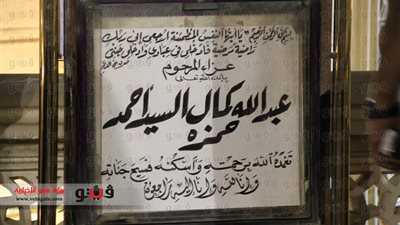 بسم الله الرحمن الرحيم يا أيتها النفس المطمئنة ارجعي إلى ربك
راضية مرضية فادخلي في عبادي وادخلي جنتي
عزاء المرحوم
بإذن الله تعالى
عبدالله كمال السيد أحمد
حمزه
تغمده الله برحمته وأسكنه فسيح جناته
وإنا لله وإنا إليه راجعون
فيتو
بوابة فيتو الإخبارية
www.vetogate.com